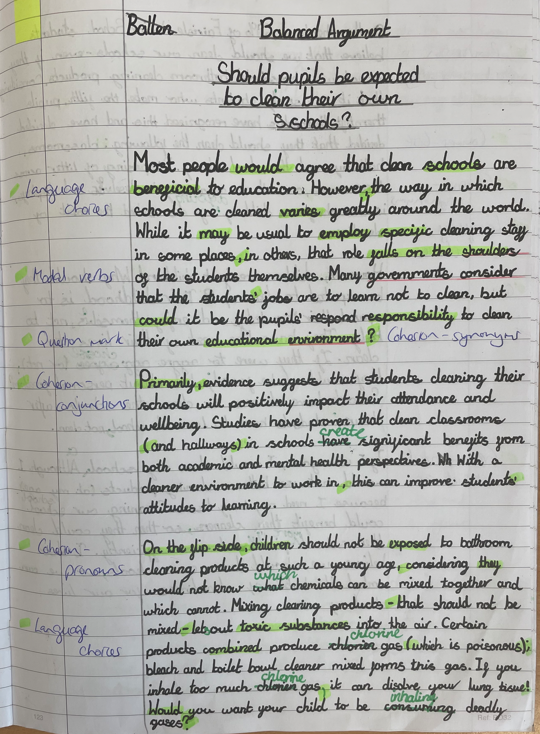 Batten Balanced Argument
Should pupils be expected
to clean their own
schools?
Most people would agree that clean schools are
Language choices
beneficial to education. However, the way in which
schools are cleaned varies greatly around the world.
While it may be usual to employ specific cleaning staff
in some places, in others, that role falls on the shoulders
Modal verbs
of the students themselves. Many governments consider
that the students' jobs are to learn not to clean, but
could it be the pupils' respond responsibility to clean
Question mark
their own educational environment? Cohesion-synonyms
Cohesion-
conjunctions
Primarily, evidence suggests that students cleaning their
schools will positively impact their attendance and
wellbeing. Studies have proven that clean classrooms
create
(and hallways) in schools have significant benefits from
both academic and mental health perspectives. Wh With a
cleaner environment to work in, this can improve students'
attitudes to learning.
Cohesion-
pronouns
On the flip side, children should not be exposed to bathroom
cleaning products at such a young age, considering they
which
would not know what chemicals can be mixed together and
which cannot. Mixing cleaning products - that should not be
Language
choices
mixed - let out toxic substances into the air. Certain
chlorine
products combined produce chlorien gas (which is poisonous);
bleach and toilet bowl cleaner mixed forms this gas. If you
chlorine
inhale too much chlorien gas, it can disolve your lung tissue!
inhaling
Would you want your child to be consuming deadly
gases?